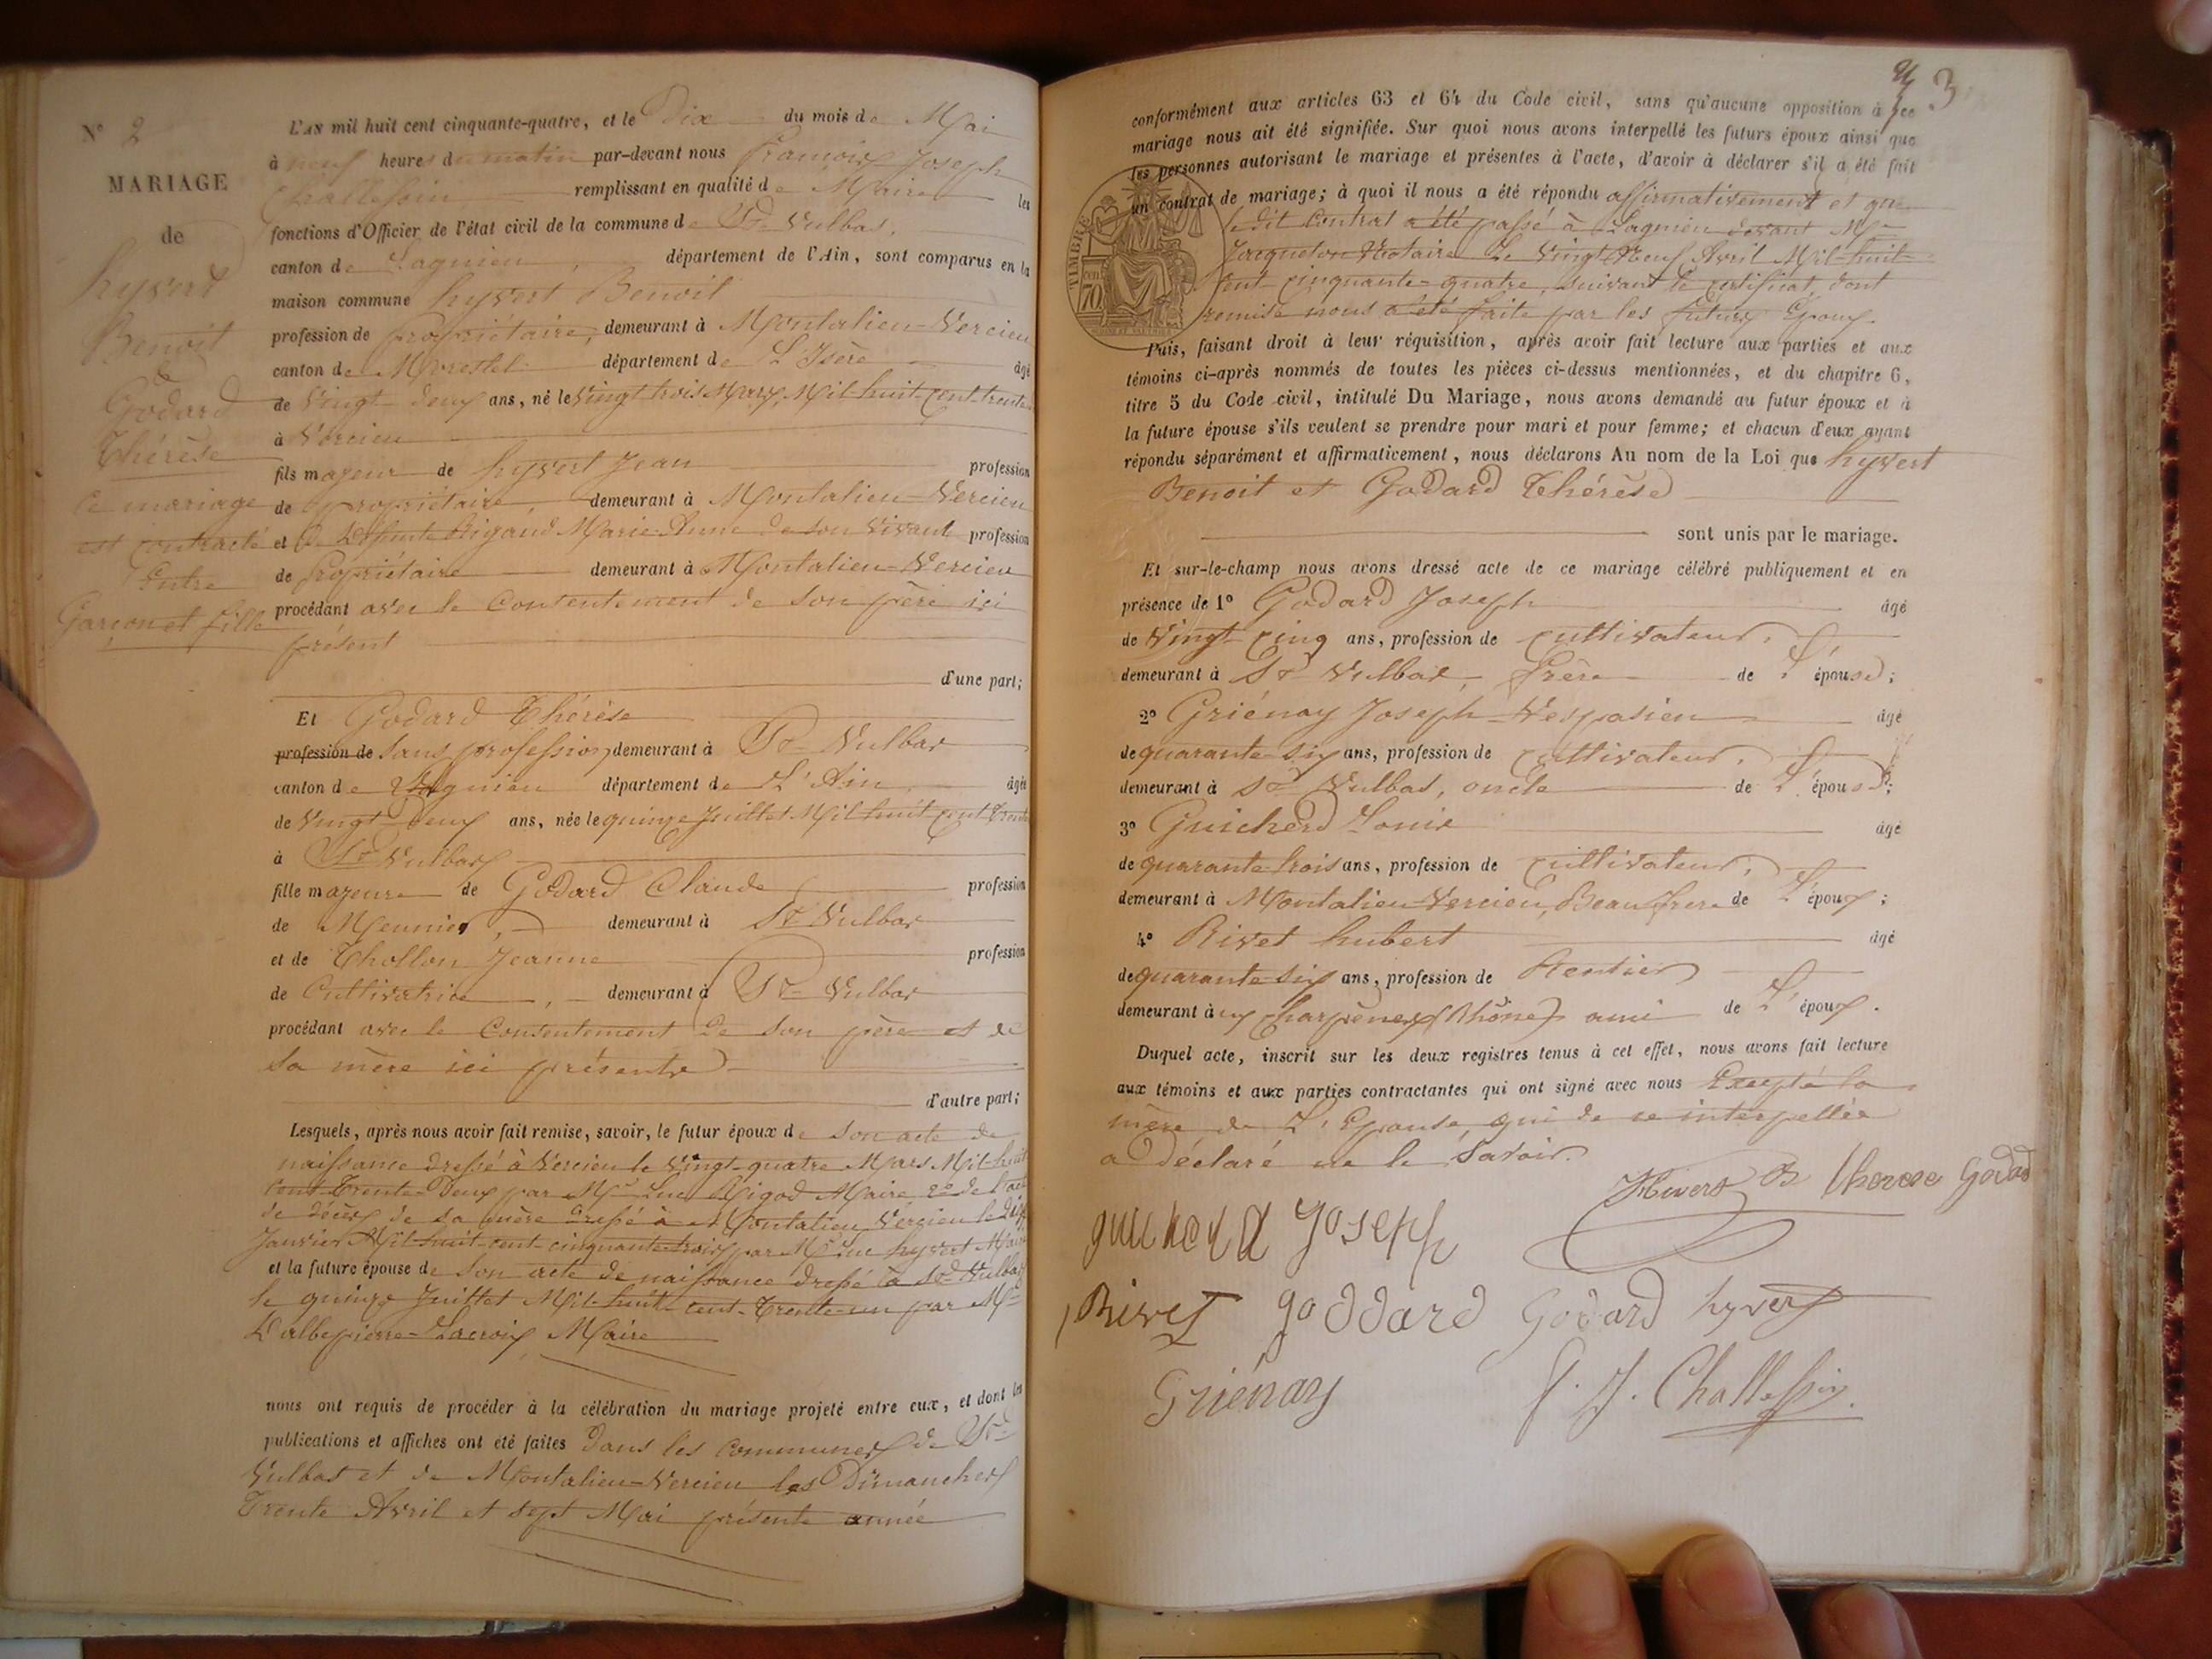 N° 2
MARIAGE
de
hyvert
Benoit
&
Godard
Thérèse
Ce mariage
est contracté
Entre
Garçon et fille
L'AN mil huit cent cinquante-quatre, et le Dix du mois de Mai
à neuf heures du matin par-devant nous François Joseph
Challession remplissant en qualité de Maire les
fonctions d'Officier de l'état civil de la commune de St Vulbas,
canton de Lagnieu, département de l'Ain, sont comparus en la
maison commune hyvert Benoit
profession de propriétaire, demeurant à Montalieu-Vercieu
canton de Morestel département de L'Isère âgé
de Vingt-deux ans, né le Vingt trois Mars Mil-huit-cent-trente
à Vercieu
fils majeur de hyvert Jean profession
de propriétaire, demeurant à Montalieu-Vercieu
et de Défunte Rigaud Marie-Anne de son Vivant profession
de Propriétaire demeurant à Montalieu-Vercieu
procédant avec le Consentement de son père ici
présent
d'une part;
Et Godard Thérèse
profession de sans profession, demeurant à St Vulbas
canton de Lagnieu département de L'Ain âgée
de Vingt-Deux ans, née le quinze Juillet Mil huit cent Trente
à St Vulbas
fille majeure de Godard Claude profession
de Meunier, demeurant à St Vulbas
et de Thollon Jeanne profession
de Cultivatrice, demeurant à St Vulbas
procédant avec le Consentement de son père et de
sa mère ici présents
d'autre part;
Lesquels, après nous avoir fait remise, savoir, le futur époux de son acte de
naissance dressé à Vercieu le Vingt-quatre Mars Mil-huit
cent-Trente-Deux par Mr Luc Rigod Maire 2° de l'acte
de décès de sa mère dressé à Montalieu Vercieu le dix
Janvier Mil-huit-cent-cinquante-trois par Mr Luc hyvert Maire
et la future épouse de son acte de naissance dressé à St Vulbas
le quinze Juillet Mil-huit-cent-Trente-un par Mr
Dalbepierre-Lacroix Maire
nous ont requis de procéder à la célébration du mariage projeté entre eux, et dont les
publications et affiches ont été faites dans les communes de St
Vulbas et de Montalieu-Vercieu les Dimanches
Trente Avril et sept Mai présente année
3
conformément aux articles 63 et 64 du Code civil, sans qu'aucune opposition à ce
mariage nous ait été signifiée. Sur quoi nous avons interpellé les futurs époux ainsi que
les personnes autorisant le mariage et présentes à l'acte, d'avoir à déclarer s'il a été fait
un contrat de mariage; à quoi il nous a été répondu affirmativement et que
ledit Contrat a été passé à Lagnieu devant Me
Jacqueton Notaire Le Vingt Neuf Avril Mil-huit-
Cent-cinquante-quatre, suivant le certificat, dont
remise nous a été faite par les futurs Epoux.
TIMBRE
70
Puis, faisant droit à leur réquisition, après avoir fait lecture aux parties et aux
témoins ci-après nommés de toutes les pièces ci-dessus mentionnées, et du chapitre 6,
titre 5 du Code civil, intitulé Du Mariage, nous avons demandé au futur époux et à
la future épouse s'ils veulent se prendre pour mari et pour femme; et chacun d'eux ayant
répondu séparément et affirmativement, nous déclarons Au nom de la Loi que hyvert
Benoit et Godard Thérèse
sont unis par le mariage.
Et sur-le-champ nous avons dressé acte de ce mariage célébré publiquement et en
présence de 1° Godard Joseph âgé
de Vingt-cinq ans, profession de cultivateur,
demeurant à St Vulbas, frère de L'épouse;
2° Griénay Joseph-Vespasien âgé
de quarante-six ans, profession de cultivateur,
demeurant à St Vulbas, oncle de L'épouse;
3° Guicherd Louis âgé
de quarante-trois ans, profession de cultivateur,
demeurant à Montalieu-Vercieu, Beau frere de L'époux;
4° Rivet hubert âgé
de quarante-six ans, profession de Rentier
demeurant aux Charpènes (Rhône) ami de L'époux.
Duquel acte, inscrit sur les deux registres tenus à cet effet, nous avons fait lecture
aux témoins et aux parties contractantes qui ont signé avec nous Excepté la
mère de L'Epouse, qui de ce interpellée
a déclaré ne le Savoir.
Hivert B Therese Godard
guicherd Joseph
Rivet goddard Godard hyvert
Griénay F. J. Challession.